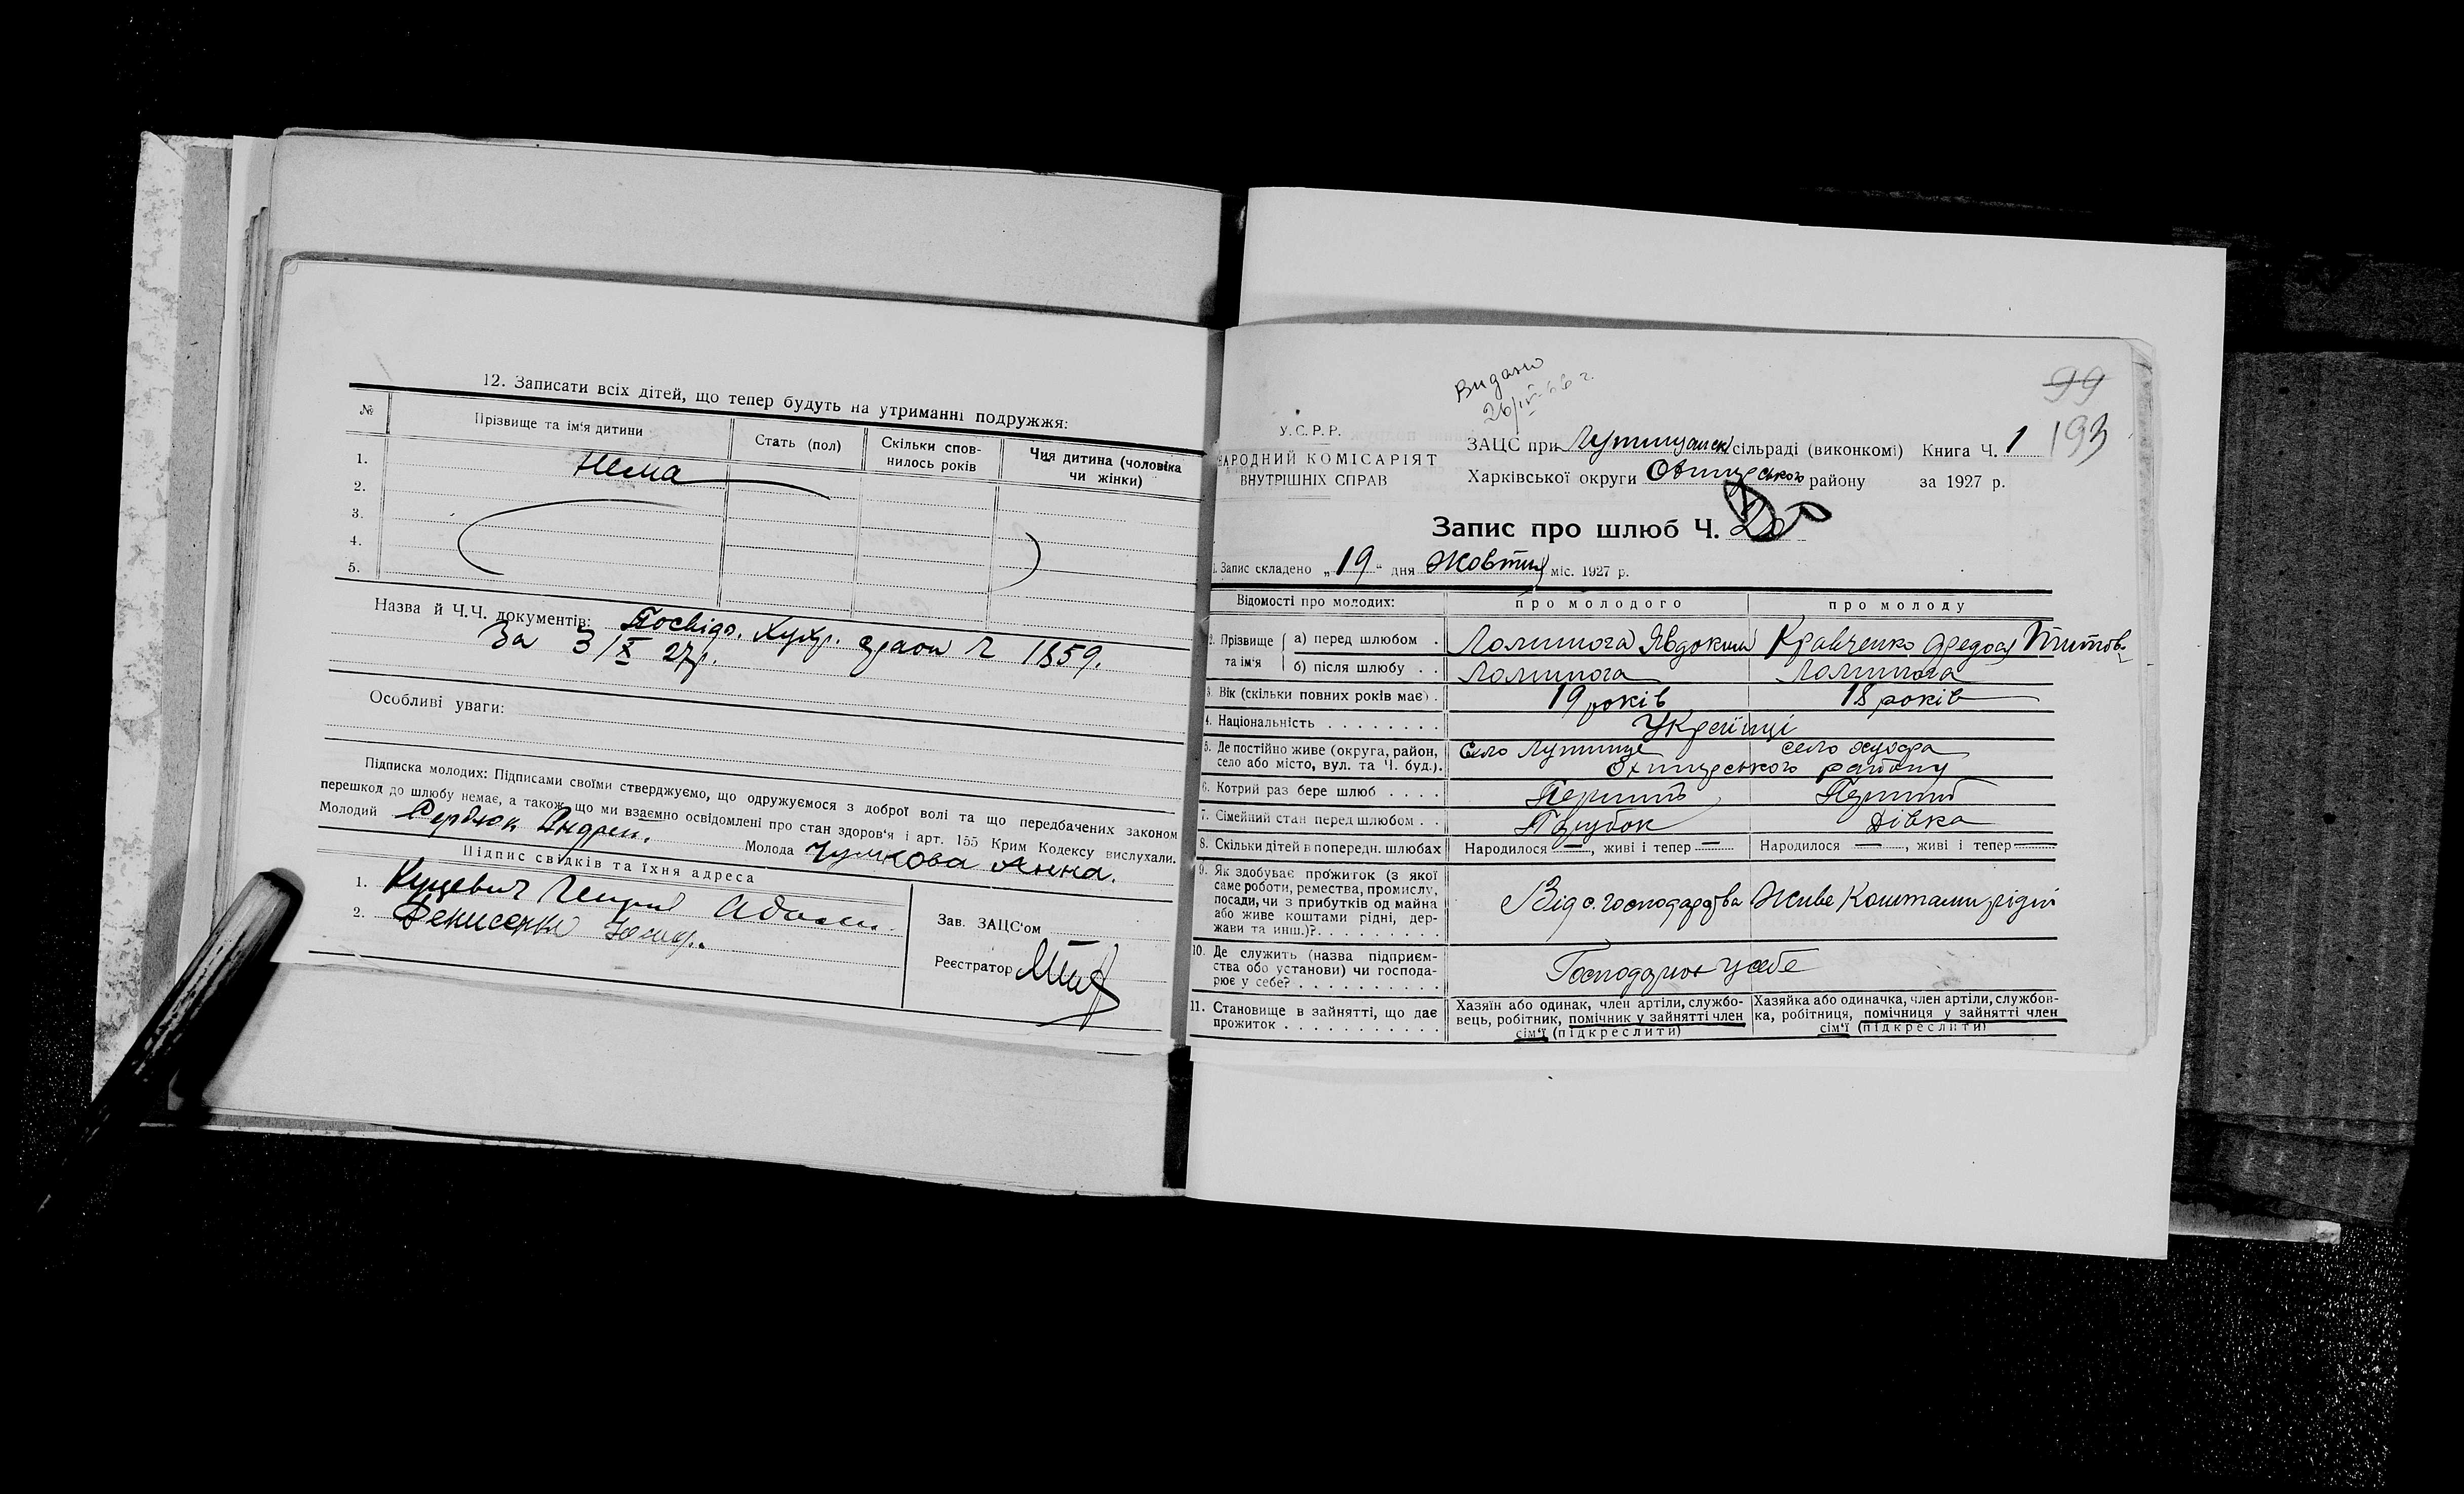 12. Записати всіх дітей, що тепер будуть на утриманні подружжя:
№ Прізвище та ім'я дитини Стать (пол) Скільки спов-нилось років Чия дитина (чоловіка чи жінки)
1. Нема
2.
3.
4.
5.
Назва й Ч.Ч. документів: Посвідо. 1859.
За 3/X 27р.
Особливі уваги:
Підписка молодих: Підписами своїми стверджуємо, що одружуємося з доброї волі та що передбачених законом
перешкод до шлюбу немає, а також що ми взаємно освідомлені про стан здоров'я і арт. 155 Крим Кодексу вислухали.
Молодий Сердюк Андрей. Молода Чумкова Анна.
Підпис свідків та їхня адреса
1. Куцевич
2. Денисенко
Зав. ЗАЦС'ом —
Реєстратор
Видано
26/IV-66 г.
99
193
У.С.Р.Р.
НАРОДНИЙ КОМІСАРІЯТ
ВНУТРІШНІХ СПРАВ
ЗАЦС при Лутищанськ сільраді (виконкомі) Книга Ч. 1
Харківської округи Охтирського району за 1927 р.
Запис про шлюб Ч.
1. Запис складено „19" дня Жовтня міс. 1927 р.
Відомості про молодих: про молодого про молоду
2. Прізвище та ім'я а) перед шлюбом . Явдоким Кравченко Федося Титов.
б) після шлюбу . .
3. Вік (скільки повних років має) . 19 років 18 років
4. Національність . . . . . . . . Українці
5. Де постійно живе (округа, район, Село Лутище село Хухра
село або місто, вул. та Ч. буд.). Охтирського району
6. Котрий раз бере шлюб . . . . Перший Перший
7. Сімейний стан перед шлюбом . . Парубок Дівка
8. Скільки дітей в попередн. шлюбах Народилося —, живі і тепер — Народилося —, живі і тепер —
9. Як здобуває прожиток (з якої
саме роботи, ремества, промислу,
посади, чи з прибутків од майна
або живе коштами рідні, дер-
жави та инш.)?. . . . . . . . . Від с. господарства Живе Коштами рідні
10. Де служить (назва підприєм-
ства обо установи) чи господа-
рює у себе? . . . . . . . . . . . Господарює у себе
11. Становище в зайнятті, що дає
прожиток . . . . . . . . . . . .
Хазяїн або одинак, член артіли, службо-
вець, робітник, помічник у зайнятті член
сім'ї (підкреслити)
Хазяйка або одиначка, член артіли, службов-
ка, робітниця, помічниця у зайнятті член
сім'ї (підкреслити)